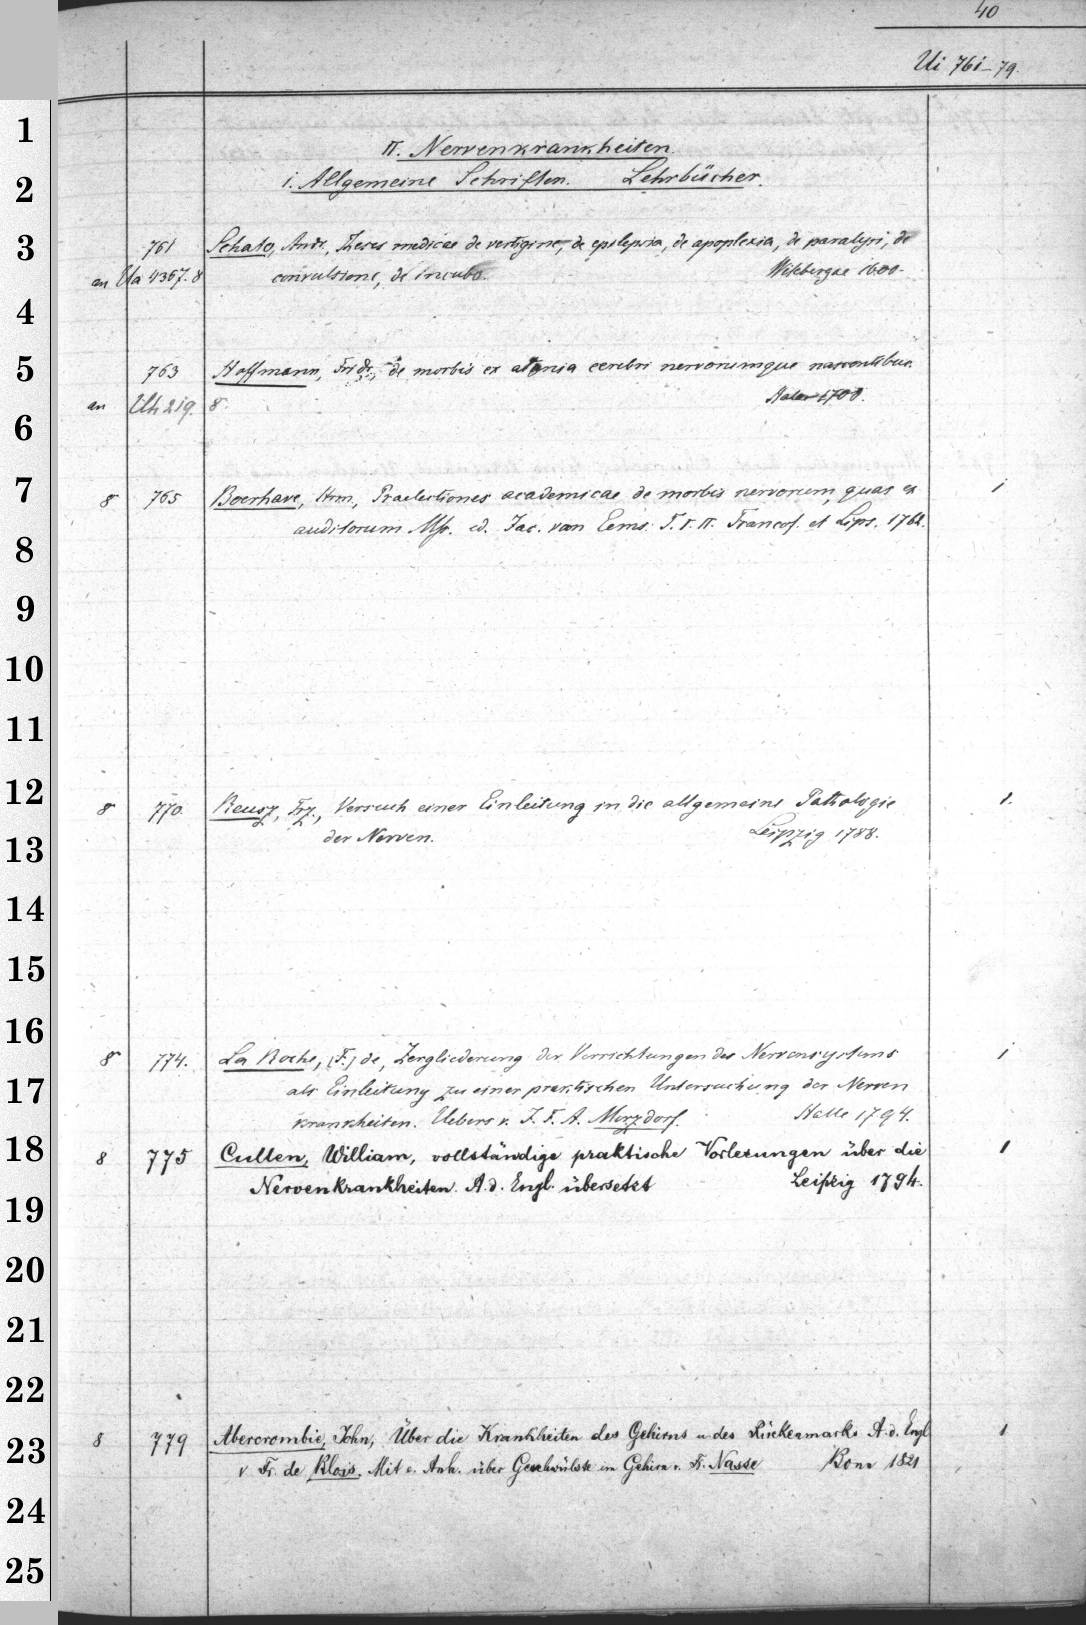 40
Ui 761-79.
1
II. Nervenkrankheiten.
2
1. Allgemeine Schriften. Lehrbücher.
3
761 Schato, Andr., Theses medicae de vertigine, de epilepsia, de apoplexia, de paralysi, de
an Ua 4367. 8 convulsione, de incubo. Witebergae 1600.
4
5
763 Hoffmann, Fridr., de morbis ex atonia cerebri nervorumque nascentibus.
an Uh 219. 8. Halae 1708.
6
7
8 765 Boerhave, Hrm., Praelectiones academicae de morbis nervorum, quas ex 1
auditorum Msp. ed. Jac. van Eems. T. I. II. Francof. et Lips. 1762.
8
9
10
11
12
8 770. Reusz, Frz., Versuch einer Einleitung in die allgemeine Pathologie 1.
der Nerven. Leipzig 1788.
13
14
15
16
8 774. La Roche, (F.) de, Zergliederung der Verrichtungen des Nervensystems 1
17
als Einleitung zu einer praktischen Untersuchung der Nerven
krankheiten. Uebers v. J. F. A. Merzdorf. Halle 1794.
18
8 775 Cullen, William, vollständige praktische Vorlesungen über die 1
Nervenkrankheiten. A. d. Engl. übersetzt Leipzig 1794.
19
20
21
22
23
8 779 Abercrombie, John, Über die Krankheiten des Gehirns u. des Rückenmarks A. d. Engl 1
v Fr. de Blois. Mit e. Anh. über Geschwülste im Gehirn v. Fr. Nasse Bonn 1821
24
25